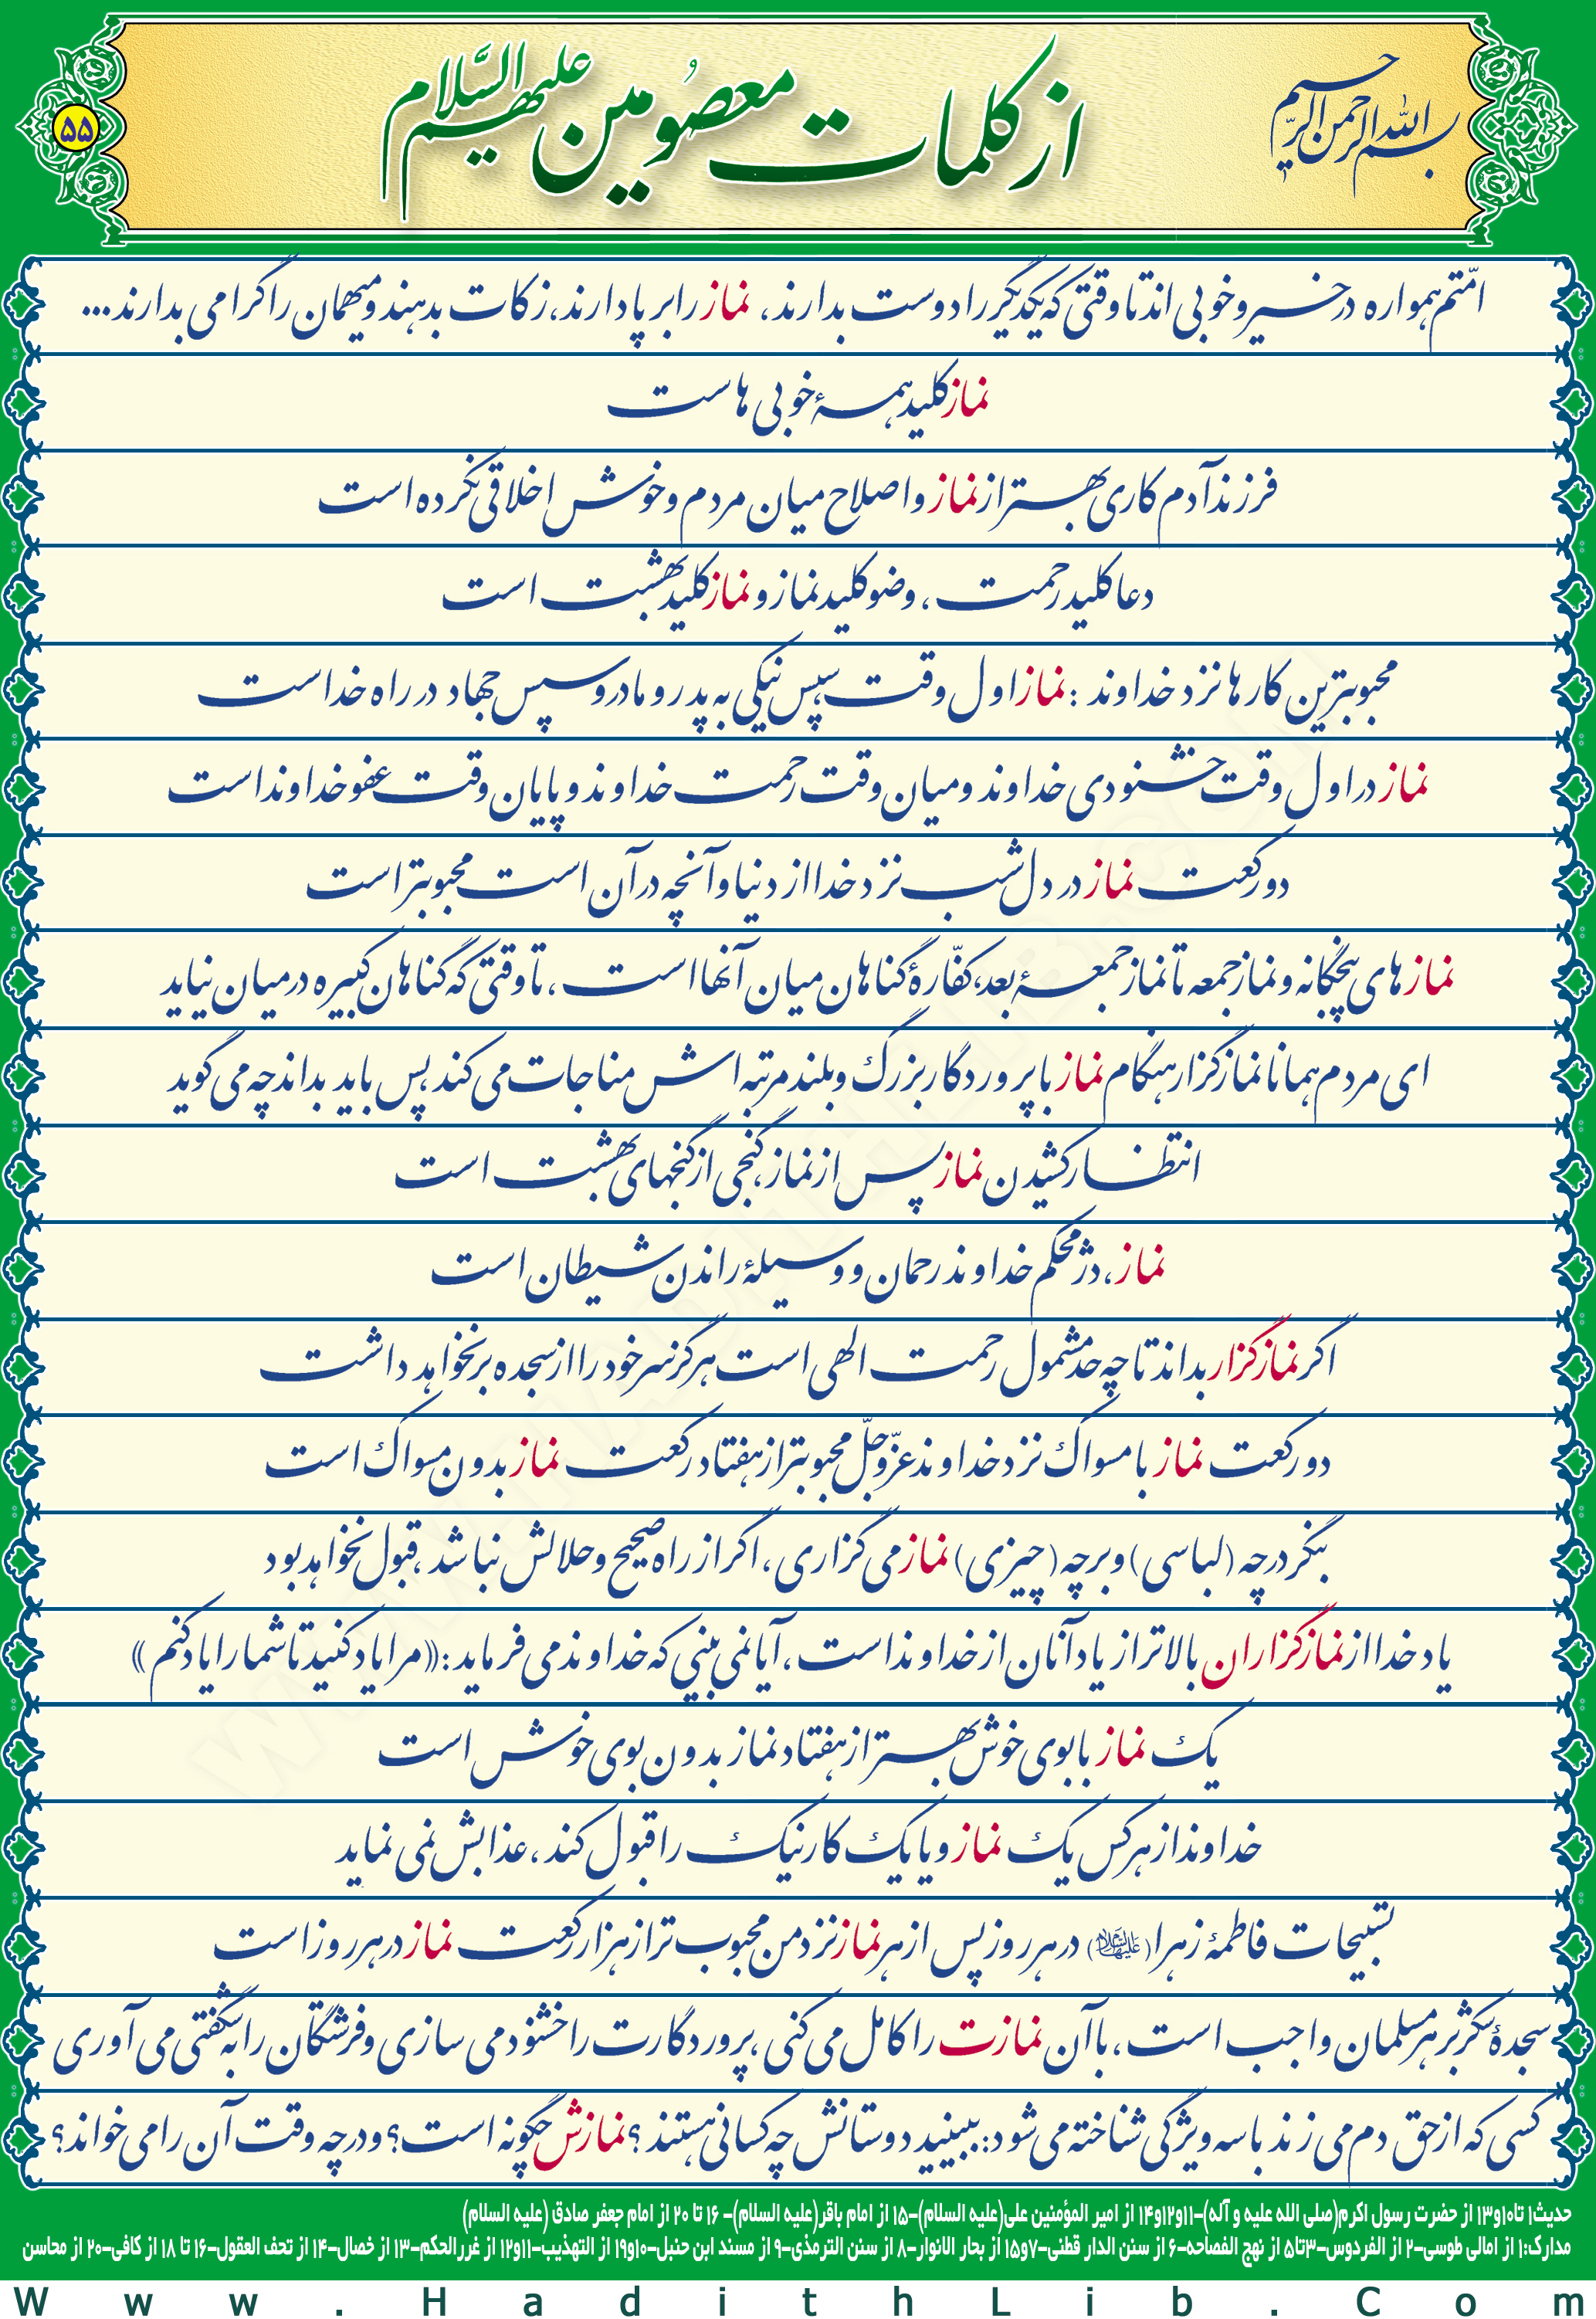 بسم الله الرحمن الرحیم
از کلمات معصومین علیهم السّلام
۵۵
امّتم همواره در خیر و خوبی اند تا وقتی که یکدیگر را دوست بدارند، نماز را برپا دارند، زکات بدهند و میهمان را گرامی بدارند...
نماز کلید همۀ خوبی هاست
فرزند آدم کاری بهتر از نماز و اصلاح میان مردم و خوش اخلاقی نکرده است
دعا کلید رحمت، وضو کلید نماز و نماز کلید بهشت است
محبوبترین کارها نزد خداوند : نماز اول وقت سپس نیکی به پدر و مادر و سپس جهاد در راه خداست
نماز در اول وقت خشنودی خداوند و میان وقت رحمت خداوند و پایان وقت عفو خداوند است
دو رکعت نماز در دل شب نزد خدا از دنیا و آنچه در آن است محبوبتر است
نمازهای پنجگانه و نماز جمعه تا نماز جمعۀ بعد، کفّارۀ گناهان میان آنها است، تا وقتی که گناهان کبیره در میان نیاید
ای مردم همانا نمازگزار هنگام نماز با پروردگار بزرگ و بلند مرتبه اش مناجات می کند پس باید بداند چه می گوید
انتظار کشیدن نماز پس از نماز، گنجی از گنجهای بهشت است
نماز، دژ محکم خداوند رحمان و وسیلۀ راندن شیطان است
اگر نمازگزار بداند تا چه حد مشمول رحمت الهی است هرگز سر خود را از سجده بر نخواهد داشت
دو رکعت نماز با مسواک نزد خداوند عزّوجلّ محبوبتر از هفتاد رکعت نماز بدون مسواک است
بنگر در چه (لباسی) و بر چه (چیزی) نماز می گزاری، اگر از راه صحیح و حلالش نباشد، قبول نخواهد بود
یاد خدا از نمازگزاران بالاتر از یاد آنان از خداوند است، آیا نمی بینی که خداوند می فرماید: «مرا یاد کنید تا شما را یاد کنم»
یک نماز با بوی خوش بهتر از هفتاد نماز بدون بوی خوش است
خداوند از هر کس یک نماز و یا یک کار نیک را قبول کند، عذابش نمی نماید
تسبیحات فاطمۀ زهرا (علیهاالسلام) در هر روز پس از هر نماز نزد من محبوب تر از هزار رکعت نماز در هر روز است
سجدۀ شکر بر هر مسلمان واجب است، با آن نمازت را کامل می کنی، پروردگارت را خشنود می سازی و فرشتگان را به شگفتی می آوری
کسی که از حق دم می زند با سه ویژگی شناخته می شود: ببینید دوستانش چه کسانی هستند؟ نمازش چگونه است؟ و در چه وقت آن را می خواند؟
حدیث۱ تا۱۰و۱۳ از حضرت رسول اکرم(صلی الله علیه و آله)–۱۱و۱۲و۱۴ از امیر المؤمنین علی(علیه السلام)–۱۵ از امام باقر(علیه السلام)– ۱۶ تا ۲۰ از امام جعفر صادق (علیه السلام)
مدارک:۱ از امالی طوسی–۲ از الفردوس–۳تا۵ از نهج الفصاحه–۶ از سنن الدار قطنی–۷و۱۵ از بحار الانوار–۸ از سنن الترمذی–۹ از مسند ابن حنبل–۱۰و۱۹ از التهذیب–۱۱و۱۲ از غررالحکم–۱۳ از خصال–۱۴ از تحف العقول–۱۶ تا ۱۸ از کافی–۲۰ از محاسن
Www.HadithLib.Com